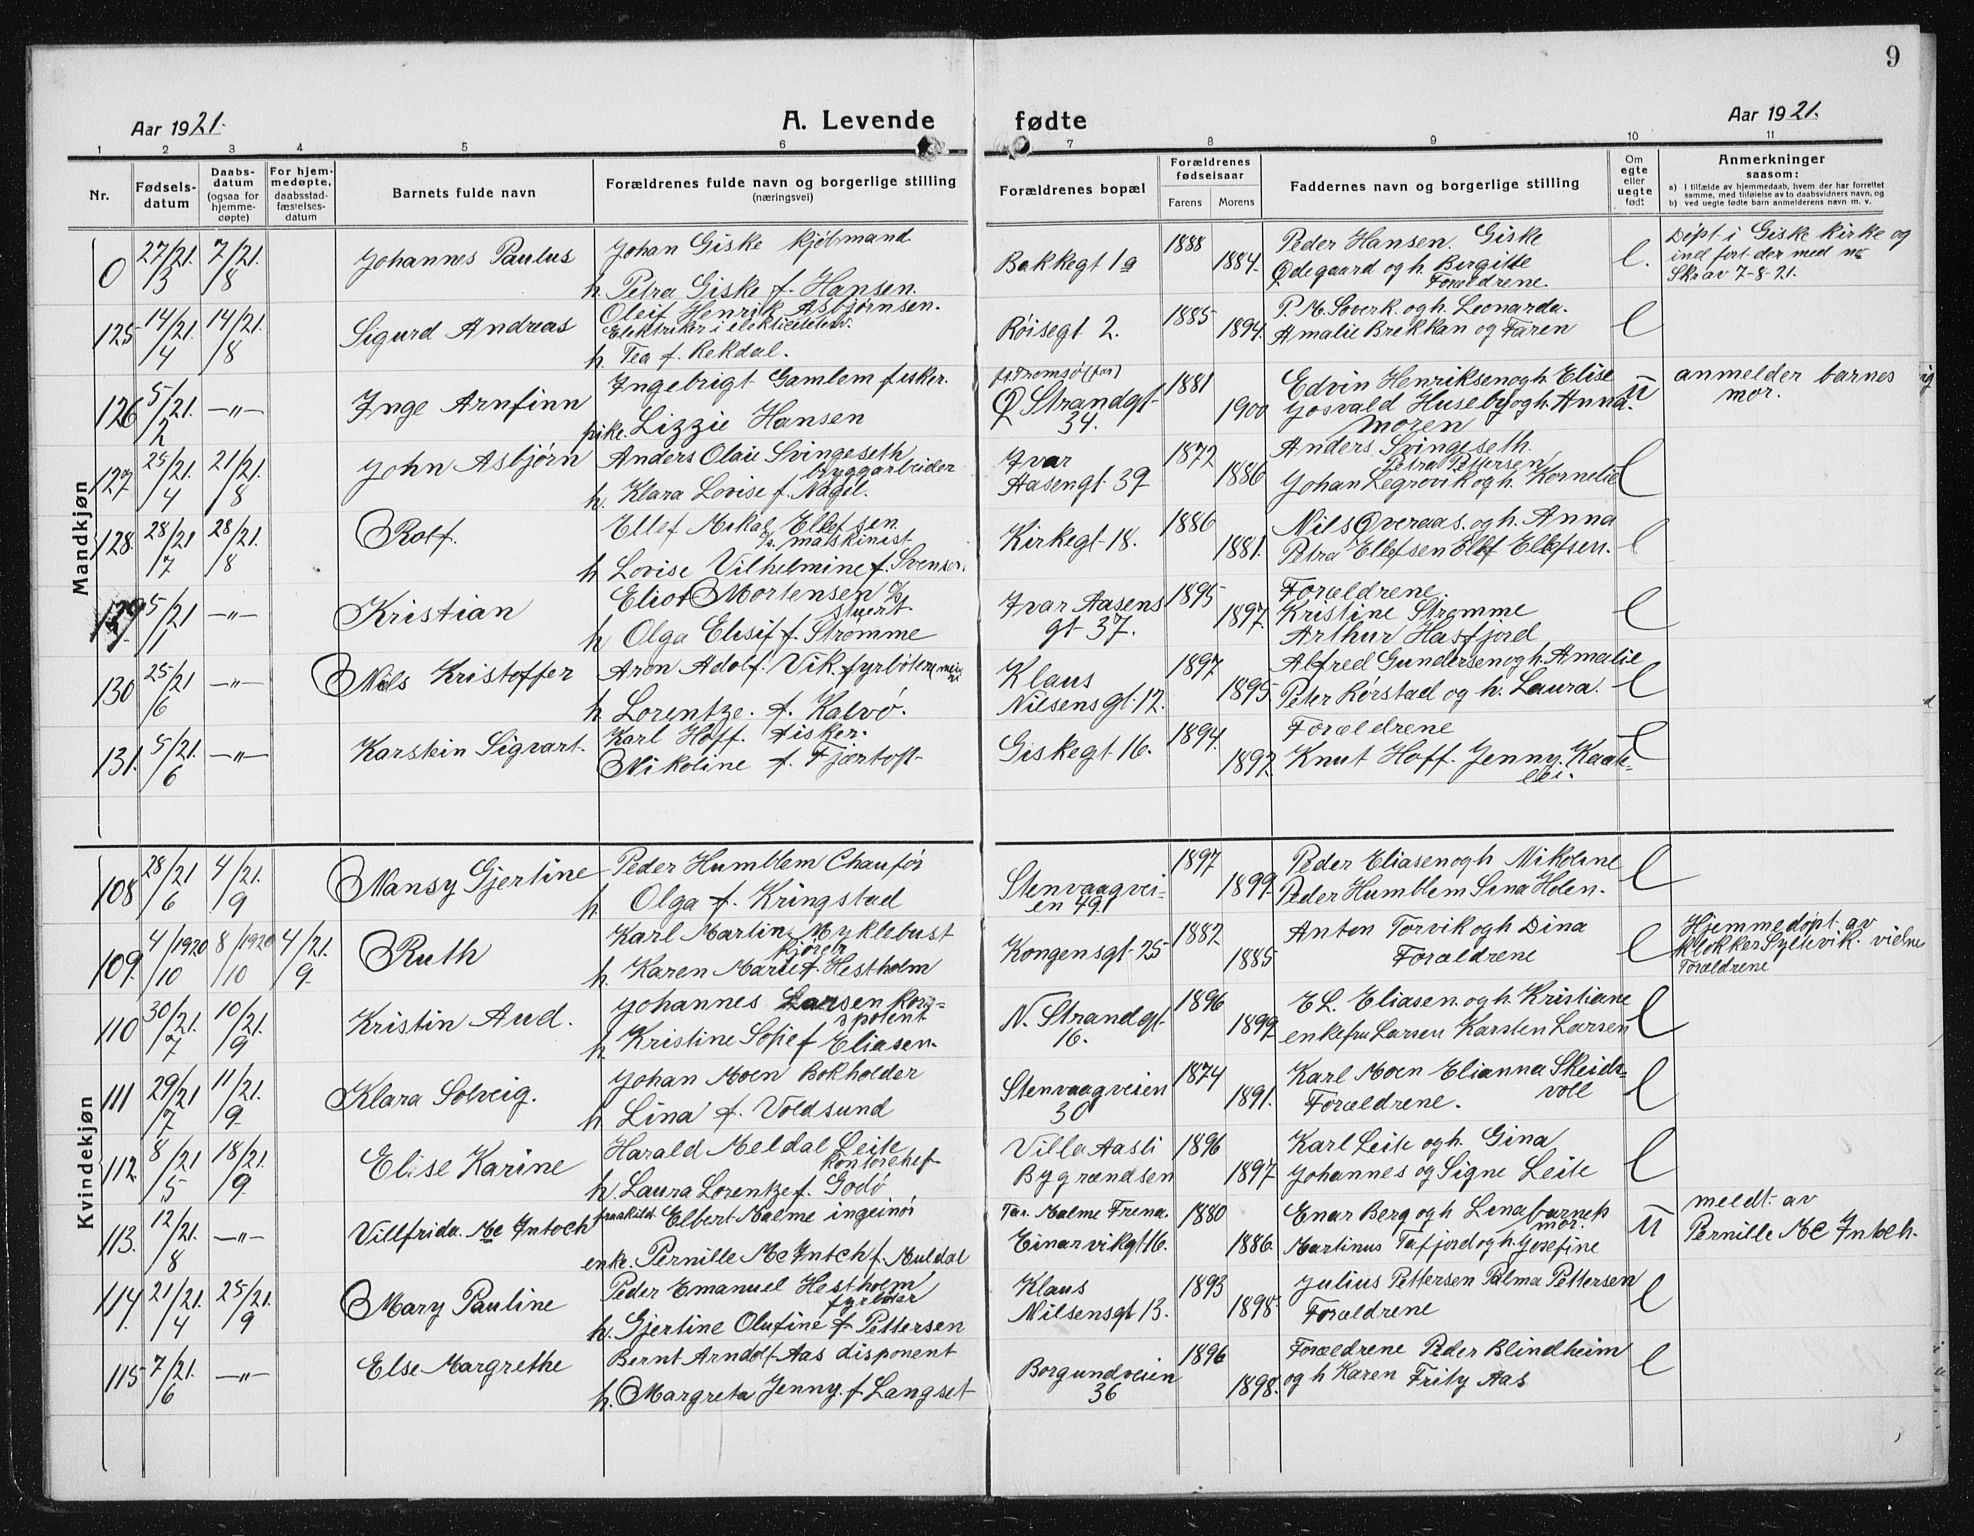 9
Aar 1921.
A. Levende fødte
Aar 1921.
1 2 3 4 5 6 7 8 9 10 11
Nr.
Fødsels-datum
Daabs-datum (ogsaa for hjemme-døpte)
For hjem-medøpte, daabsstad-fæstelses-datum
Barnets fulde navn
Forældrenes fulde navn og borgerlige stilling
(næringsvei)
Forældrenes bopæl
Forældrenes fødselsaar
Farens Morens
Faddernes navn og borgerlige stilling
Om egte eller uegte født
Anmerkninger
saasom:
a) I tilfælde av hjemmedaab, hvem der har forrettet
samme, med tilføielse av to daabsvidners navn, og
b) ved uegte fødte barn anmelderens navn m. v.
Mandkjøn
0 27/21 3 7/21. 8 Johannes Paulus Johan Giske kjøbmand
h. Petra Giske f. Hansen.
Bakkegt 1a 1888 1884. Peder Hansen. Giske
Ødegaard og h. Birgitte
Forældrene. e.
Døpt i Giske kirke og
indført der med no
Skrav 7-8-21.
125 14/21. 4 14/21. 8 Sigurd Andreas Oleif Henrik Asbjørnsen.
Elektriker i
h. Tea f. Rekdal.
Røisegt 2. 1885 1894. P. M. Soverk. og h. Leonarda.
Amalie Brekkan og Faren e
126 5/21. 2 -"- Inge Arnfinn Ingebrigt Gamlem fisker.
pike. Lizzie Hansen
f. Tromsø (far)
Ø Strandgt 34. 1881 1900 Edvin Henriksen og h. Elise
Gosvald Huseby og h. Anna.
Moren u
anmelder barnes
mor.
127 25/21. 4 21/21. 8 John Asbjørn Anders Olai Svingeseth
byggarbeider
h. Klara Lovise f. Nagel.
Ivar
Aasengt. 39 1872 1886 Anders Svingeseth.
Petra Pettersen
Johan Legrovik og h. Kornelie e
128. 28/21 7 28/21. 8 Rolf. Ellef Mikal Ellefsen
maskinist
h Lovise Vilhelmine f. Svensen.
Kirkegt 18. 1886 1881. Nils Øveraas. og h. Anna
Petra Ellefsen Ellef Ellefsen. e
129 5/21 1 -"- Kristian Eliot Mortensen
stuert
h Olga Elisif f. Strømme
Ivar Aasens
gt 37. 1895 1897. Forældrene.
Kristine Strømme
Arthur Hasfjord e
130 25/21 6 -"- Nils Kristoffer Aron Adolf. Vik. fyrbøter
h Lorentze. f. Kalvø.
Klaus
Nilsens gt. 12. 1897 1895. Alfred Gundersen og h. Amalie
Peter Rørstad og h. Laura. e
131. 5/21. 6 -"- Karstein Sigvart. Karl Hoff. fisker.
Nikoline f. Fjørtoft
Giskegt 16. 1894. 1897. Forældrene
Knut Hoff. Jenny e
Kvindekjøn
108 28/21 6 4/21. 9 Nansy Gjertine Peder Humblem Chaufør
h. Olga f. Kringstad
Stenvaagvei-
en 49. 1897 1899. Peder Eliasen og h Nikoline
Peder Humblem Sina Holen. e
109. 4/1920 10 8/1920 10 4/21. 9 Ruth Karl Martin Myklebust
kjører
h. Karen Marie f. Hestholm
Kongensgt 25 1882 1885 Anton Torvik og h Dina
Forældrene e
Hjemmedøpt av
klokker Syltevik. vidne
Forældrene
110 30/21. 7 10/21. 9 Kristin Aud. Johannes Larsen korr-
spotent
h. Kristine Sofie f Eliasen.
N. Strandgt.
16. 1896 1899 E L. Eliasen. og h. Kristiane
enkefru Larsen Karsten Larsen e
111 29/21 7 11/21. 9 Klara Solveig. Johan Moen Bokholder
h Lina f. Voldsund
Stenvaagveien
30 1874 1891. Karl Moen Elianna Skeids-
voll
Forældrene. e
112. 8/21 5 18/21. 9 Elise Karine Harald Meldal Leite
kontorchef
h. Laura Lorentze f. Godø
Villa Aasli
Bygrændsen 1896 1897. Karl Leite og h. Gina
Johannes og Signe Leite e
113. 12/21. 8 -"- Villfrida. Mc Intoch fraskilt Elbert Malme ingeinør
enke. Pernille Mc Intch f. Muldal
Far. Malme Frena.
Einarvikgt 16. 1880 1886. Enar Berg og h Lina barnets
mor.
Martinus Tafjord og h. Josefine u
meldt av
Pernille Mc Intoch.
114. 21/21. 4 25/21. 9 Mary Pauline Peder Emanuel Hestholm
fyrbøter
h. Gjertine Olufine f Pettersen
Klaus
Nilsensgt 13. 1893 1898. Julius Pettersen Palma Pettersen
Forældrene e
115 7/21. 6 -"- Else Margrethe Bernt Arndolf Aas disponent
h. Margreta Jenny f Langset
Borgundveien
36 1896 1898. Forældrene Peder Blindheim
og h Karen Frity Aas e